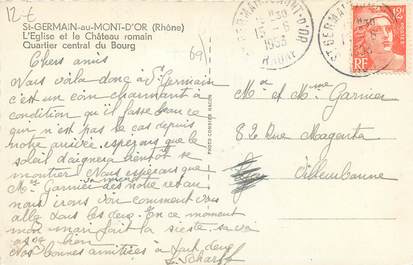 12 €
St-GERMAIN-au-MONT-D'OR (Rhône)
L'Eglise et le Château romain
Quartier central du Bourg
69
Chers amis
Nous voila donc à St Germain
c'est un coin charmant à
condition qu'il fasse beau ce
qui n'est pas le cas depuis
notre arrivée. esperons que le
soleil daignera bientot se
montrer. Nous esperons que
Mr Garnier des notre retour
nous irons voir comment vous
allez tous les deux. En ce moment
mon mari fait la sieste, sa va
assez bien
Nos bonnes amitiées à tout deux
Scharff
ST GERMAIN-AU-MONT-D'OR
1953
RHONE
12F
RF
Mr et Mme Garnier
82 Rue Magenta
Villeurbanne